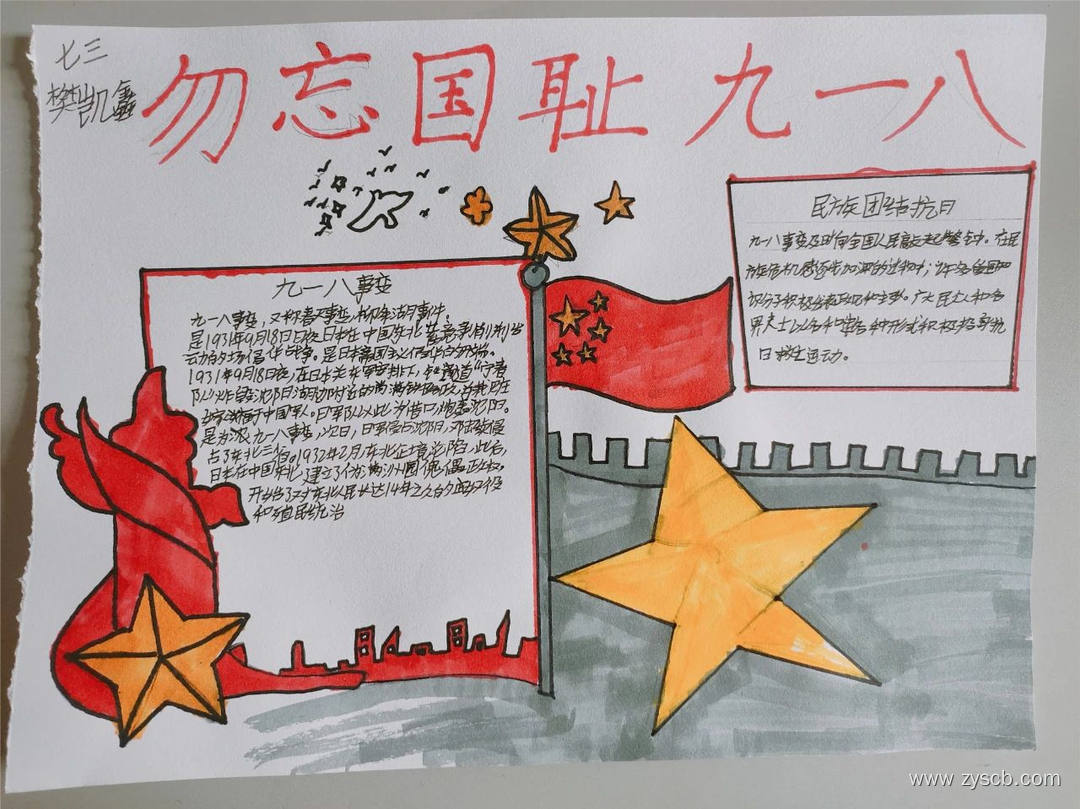 七三
樊凯鑫
勿忘国耻 九一八
九一八事变
九一八事变，又称奉天事变，柳条湖事件。
是1931年9月18日日本在中国东北蓄意
是日本帝国主义侵华的
1931年9月18日夜，在日本关东军
中国军人。日军队以此为借口，炮轰沈阳。
是为 九一八事变，次日，日军侵占沈阳，又陆续侵
占了东北三省。1932年2月，东北全境沦陷，此后，
日本在中国东北建立了伪满洲国傀儡政权。
开始了对东北人民长达14年之久的奴役
和殖民统治
民族团结抗日
九一八事变及时向全国人民敲起警钟。在民
族危机感逐步加深的过程中，许多爱国知
识分子积极 广大民主人和各
界人士以各种 形式积极投身抗
日救生运动。
www.zyscb.com